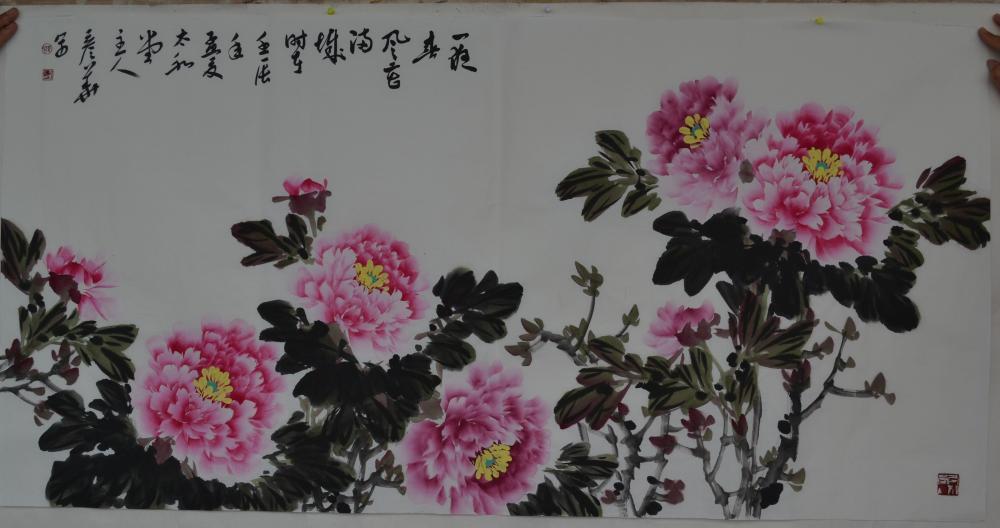 一夜
春
风花
满
城
时在
壬辰
年
孟夏
太和
堂
主人
彦华
写